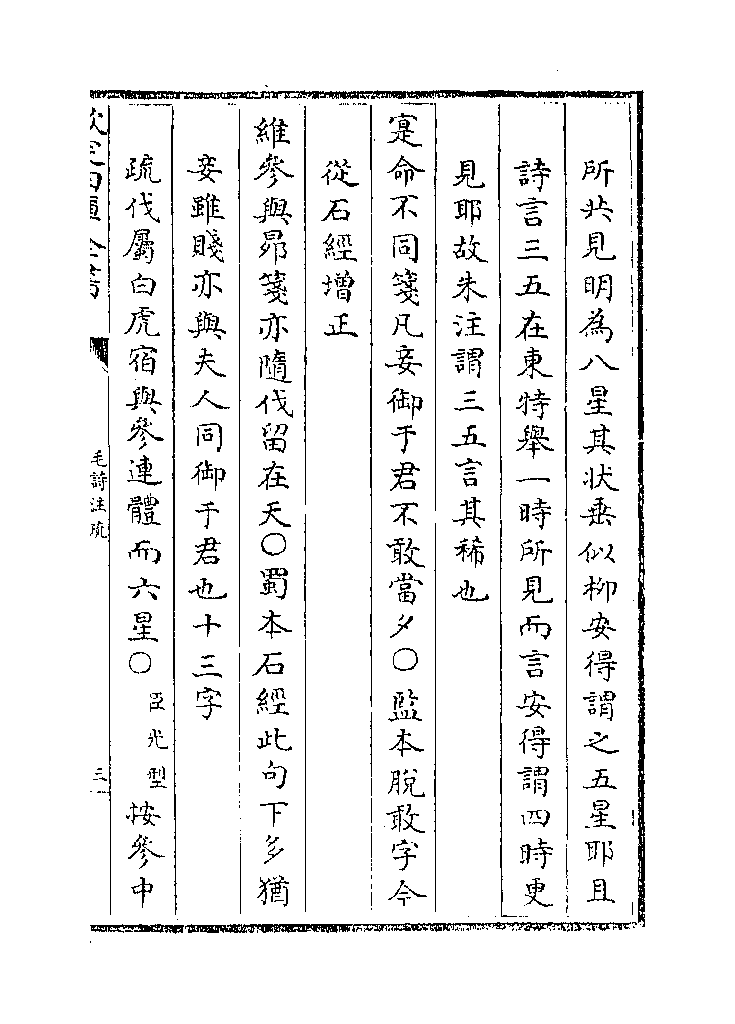 所共見明為八星其状垂似柳安得謂之五星耶且
詩言三五在東特舉一時所見而言安得謂四時更
見耶故朱注謂三五言其稀也
寔命不同箋凡妾御于君不敢當夕〇監本脫敢字今
從石經增正
維參與昴箋亦隨伐留在天〇蜀本石經此句下多猶
妾雖賤亦與夫人同御于君也十三字
疏伐屬白虎宿與參連體而六星〇臣光型按參中
欽定四庫全書
毛詩注疏
三